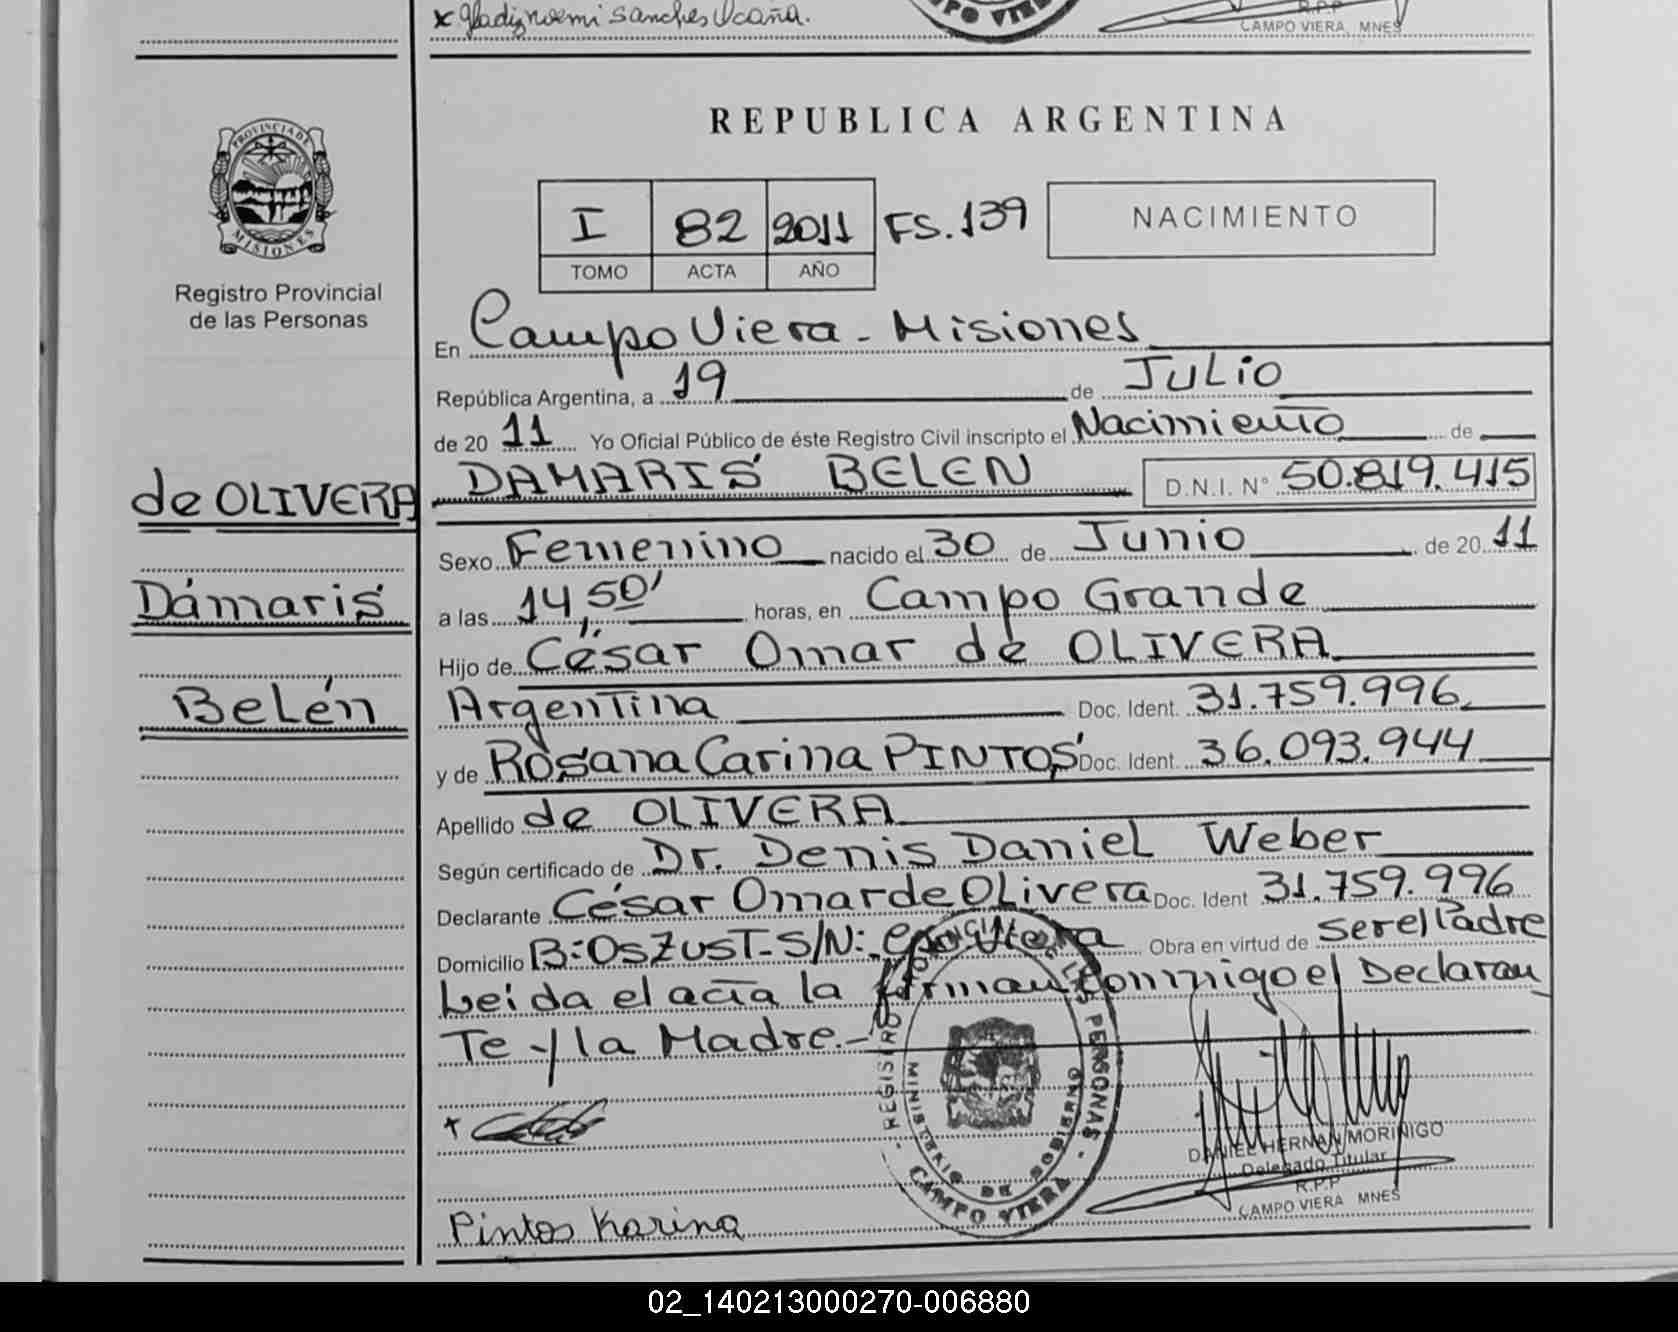 x Gladiz noemi Sanches Ocaña.
R.P.P
CAMPO VIERA, MNES
CAMPO VIERA
PROVINCIA DE
MISIONES
Registro Provincial
de las Personas
REPUBLICA ARGENTINA
I 82 2011 FS. 139 NACIMIENTO
TOMO ACTA AÑO
En Campo Viera - Misiones
República Argentina, a 19 de JULIO
de 20 11 Yo Oficial Público de éste Registro Civil inscripto el Nacimiento de
de OLIVERA DAMARIS BELEN D.N.I. N° 50.819.415
Sexo Femenino nacido el 30 de Junio de 20 11
Dámaris a las 14,50' horas, en Campo Grande
Hijo de César Omar de OLIVERA
Belén Argentina Doc. Ident. 31.759.996
y de Rosana Carina PINTOS Doc. Ident. 36.093.944
Apellido de OLIVERA
Según certificado de Dr. Denis Daniel Weber
Declarante César Omar de OLivera Doc. Ident 31.759.996
Domicilio B:OSZUST-S/N: Cpo Viera Obra en virtud de ser el Padre
Leída el acta la firman conmigo el Declaran
Te y la Madre.-
REGISTRO PROVINCIAL DE LAS PERSONAS
MINISTERIO DE GOBIERNO
CAMPO VIERA
DANIEL HERNAN MORINIGO
Delegado Titular
R.P.P
CAMPO VIERA MNES
Pintos Karina
02_140213000270-006880